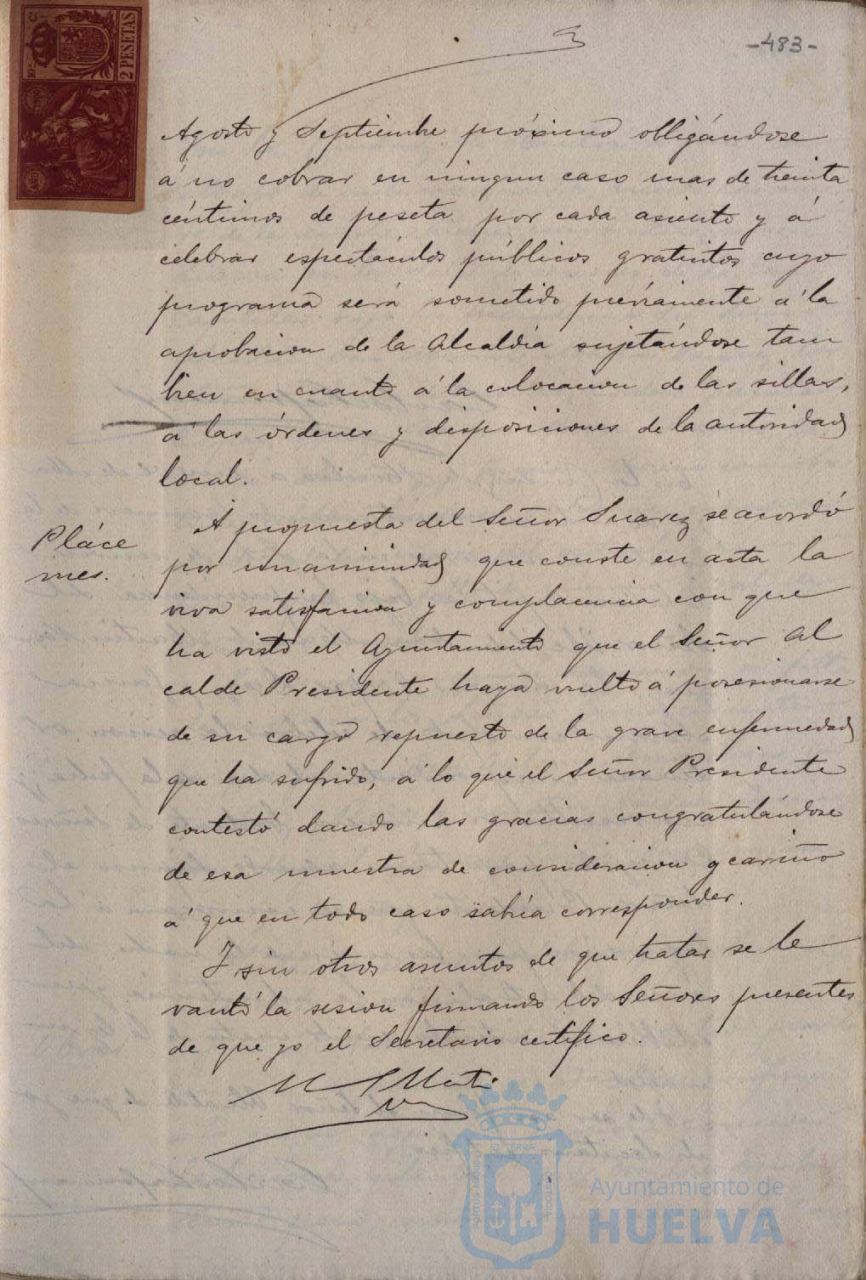 -483-
2 PESETAS
Agosto y Septiembre próximo obligándose
á no cobrar en ningun caso mas de treinta
céntimos de peseta por cada asiento y á
celebrar espectáculos públicos gratuitos cuyo
programa será sometido préviamente á la
aprobacion de la Alcaldía sujetándose tam
bien en cuanto á la colocacion de las sillas,
á las órdenes y disposiciones de la autoridad
local.
Pláce
mes.
A propuesta del Señor Suarez se acordó
por unanimidad que conste en acta la
viva satisfaccion y complacencia con que
ha visto el Ayuntamiento que el Señor Al
calde Presidente haya vuelto á posesionarse
de su cargo repuesto de la grave enfermedad
que ha sufrido, á lo que el Señor Presidente
contestó dando las gracias congratulándose
de esa muestra de consideracion y cariño
á que en todo caso sabía corresponder.
Y sin otros asuntos de que tratar se le
vantó la sesion firmando los Señores presentes
de que yo el Secretario certifico.
Ayuntamiento de
HUELVA